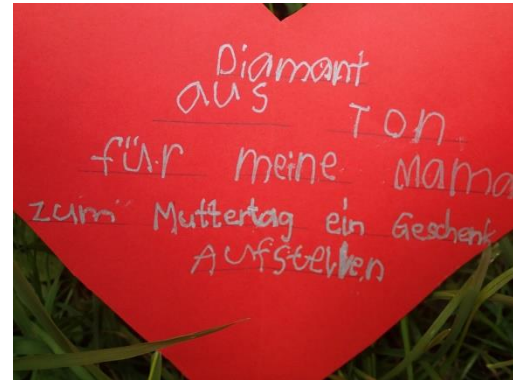 Diamant
aus Ton
für meine Mama
zum Muttertag ein Geschenk
Aufstellen